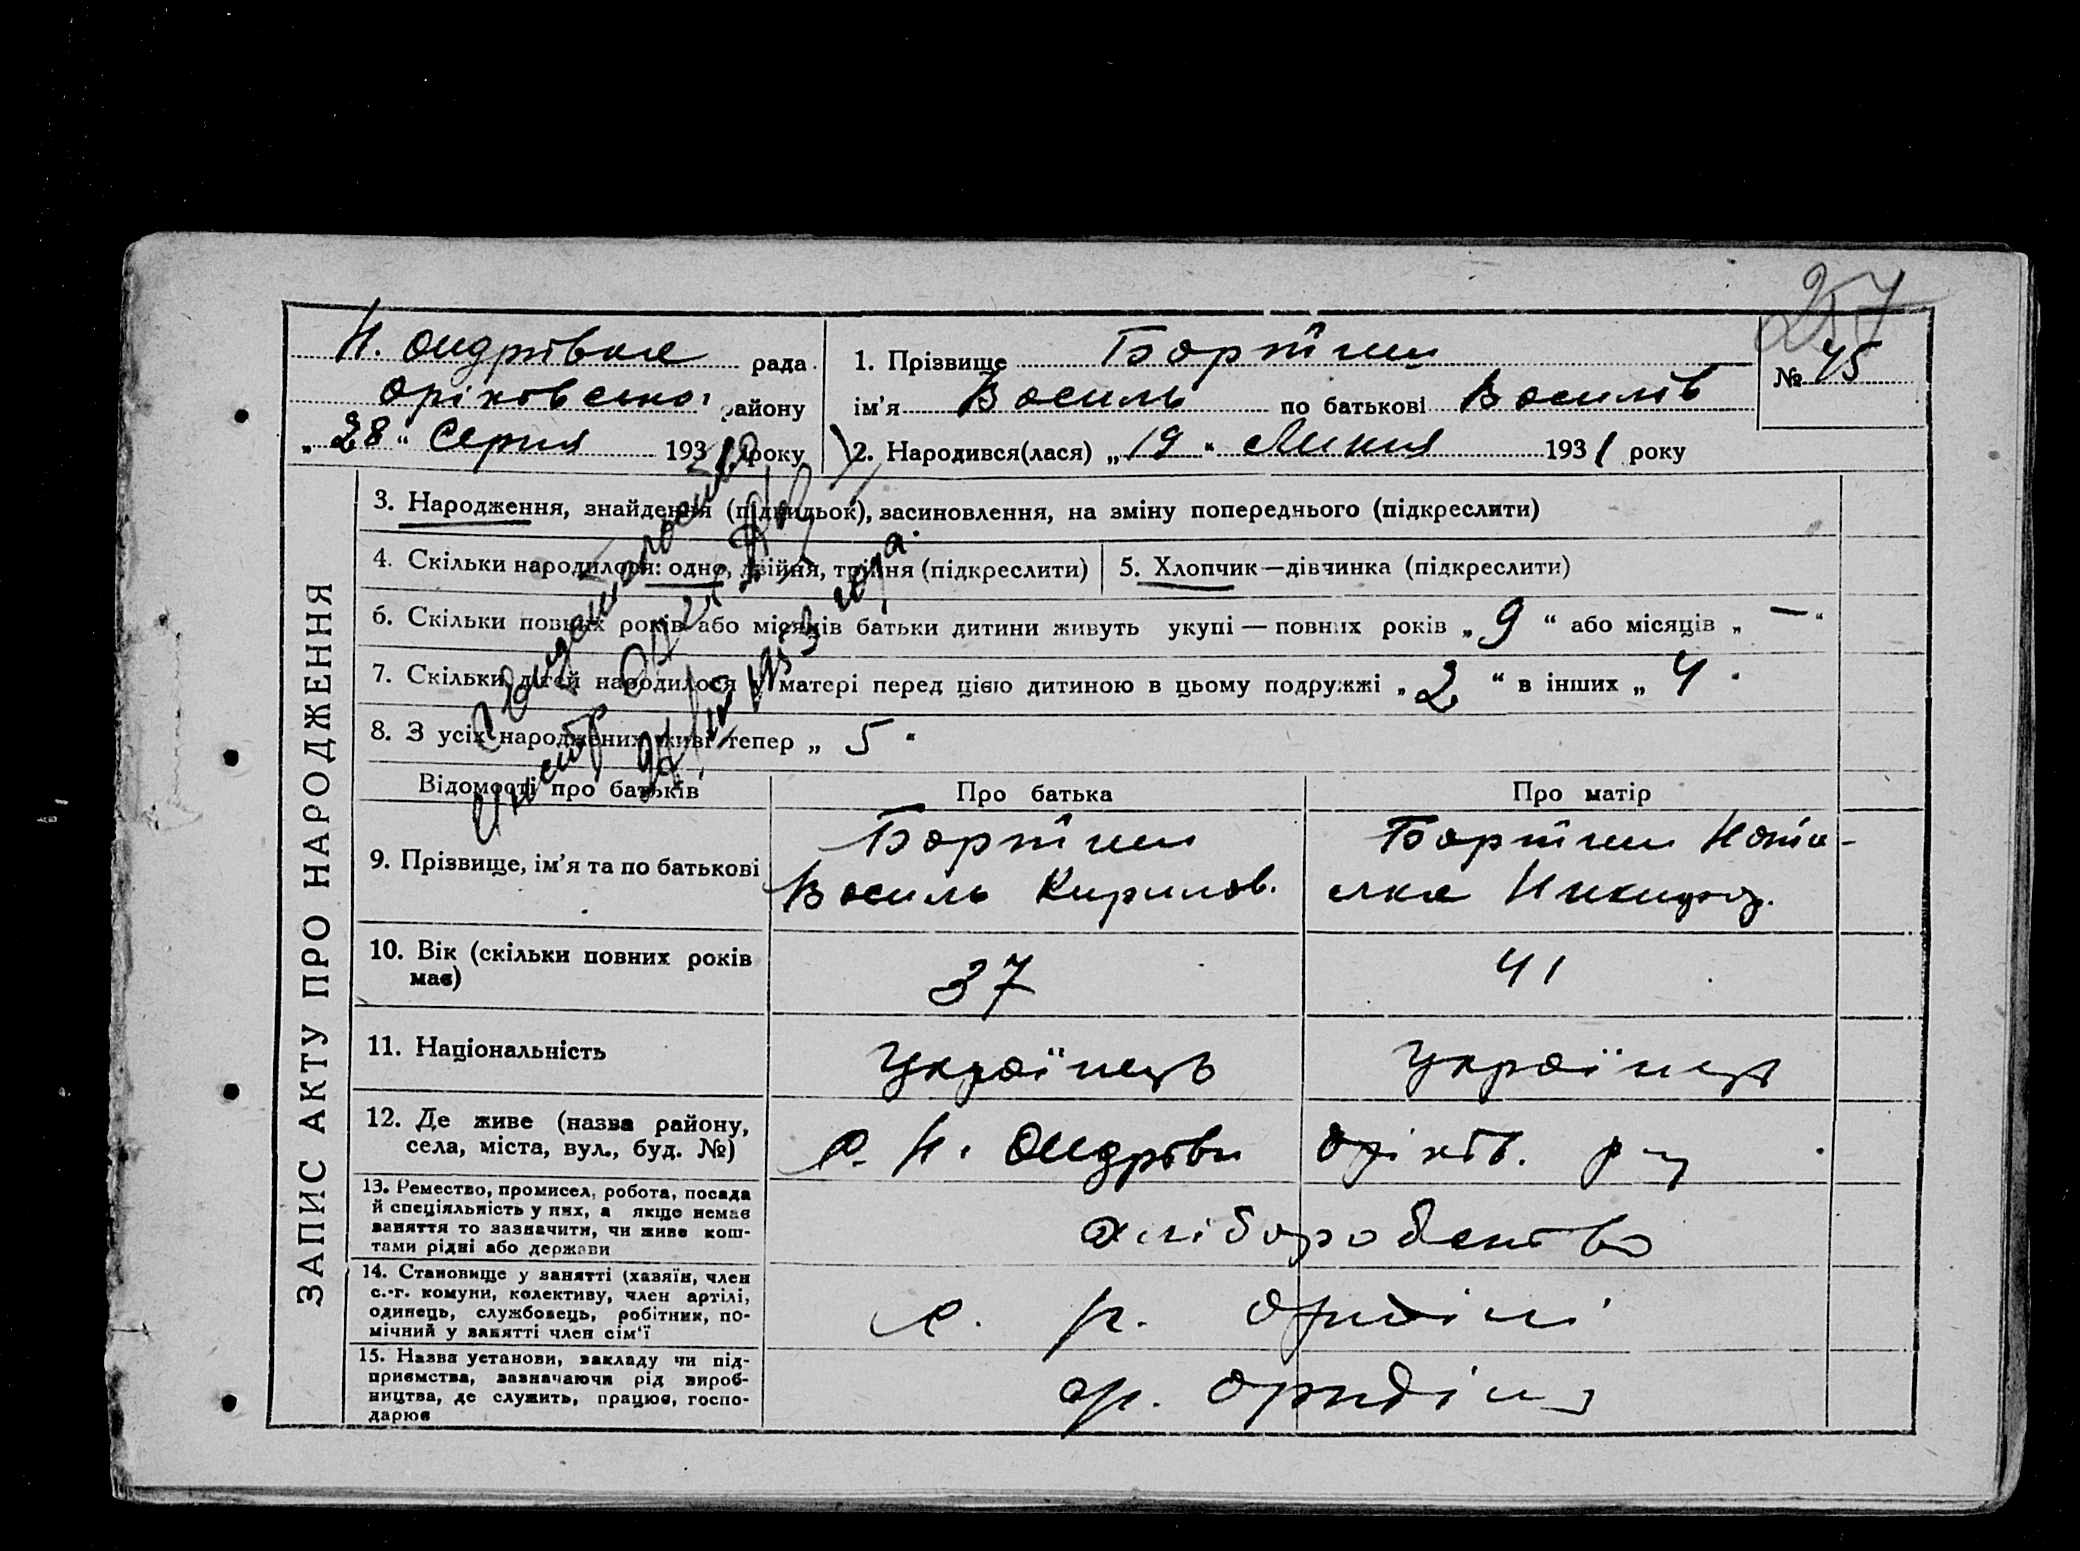 257
Н. Андрівка рада
Оріхівської району
„28“ Серпня 1931 року
1. Прізвище
ім’я Василь по батькові Василів
№ 45
2. Народився(лася) „19“ Липня 1931 року
ЗАПИС АКТУ ПРО НАРОДЖЕННЯ
3. Народження, знайдення (підкидьок), засиновлення, на зміну попереднього (підкреслити)
4. Скільки народилося: одне, двійня, трійня (підкреслити)
5. Хлопчик—дівчинка (підкреслити)
6. Скільки повних років або місяців батьки дитини живуть укупі — повних років „9“ або місяців „—“
7. Скільки дітей народилося у матері перед цією дитиною в цьому подружжі „2“ в інших „4“
8. З усіх народжених живі тепер „5“
1953 года.
Відомості про батьків
Про батька
Про матір
9. Прізвище, ім’я та по батькові
Василь Кирилов.
10. Вік (скільки повних років
має)
37
41
11. Національність
Українець
Українець
12. Де живе (назва району,
села, міста, вул., буд. №)
с. Н. Андрівка Оріхів. р-ну
13. Ремество, промисел, робота, посада
й спеціяльність у них, а якщо немає
заняття то зазначити, чи живе кош-
тами рідні або держави
хліборобство
14. Становище у занятті (хазяїн, член
с.-г. комуни, колективу, член артілі,
одинець, службовець, робітник, по-
мічний у занятті член сім’ї
ч. артілі
15. Назва установи, закладу чи під-
приємства, зазначаючи рід вироб-
ництва, де служить, працює, госпо-
дарює